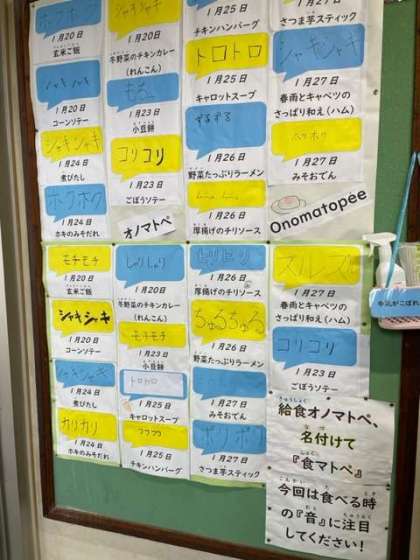 ホクホク
1月20日
玄米ご飯
シャキシャキ
1月20日
冬野菜のチキンカレー
(れんこん)
1月25日
チキンハンバーグ
1月27日
さつま芋スティック
1月20日
コーンソテー
もちもち
1月23日
小豆餅
トロトロ
1月25日
キャロットスープ
シャキシャキ
1月27日
春雨とキャベツの
さっぱり和え(ハム)
シャキシャキ
1月24日
煮びたし
コリコリ
1月23日
ごぼうソテー
ずるずる
1月26日
野菜たっぷりラーメン
ホクホク
1月27日
みそおでん
ホクホク
1月24日
ホキのみそだれ
オノマトペ
1月26日
厚揚げのチリソース
Onomatopée
モチモチ
1月20日
玄米ご飯
しゃりしゃり
1月20日
冬野菜のチキンカレー
(れんこん)
ピリピリ
1月26日
厚揚げのチリソース
ズルズル
1月27日
春雨とキャベツの
さっぱり和え(ハム)
シャキシャキ
1月20日
コーンソテー
モチモチ
1月23日
小豆餅
ちゅるちゅる
1月26日
野菜たっぷりラーメン
コリコリ
1月23日
ごぼうソテー
シャキシャキ
1月24日
煮びたし
トロトロ
1月25日
キャロットスープ
1月27日
みそおでん
カリカリ
1月24日
ホキのみそだれ
1月25日
チキンハンバーグ
ポリポリ
1月27日
さつま芋スティック
給食オノマトペ、
名付けて
『食マトペ』
今回は食べる時
の『音』に注目
してください!
牛乳がこぼれ